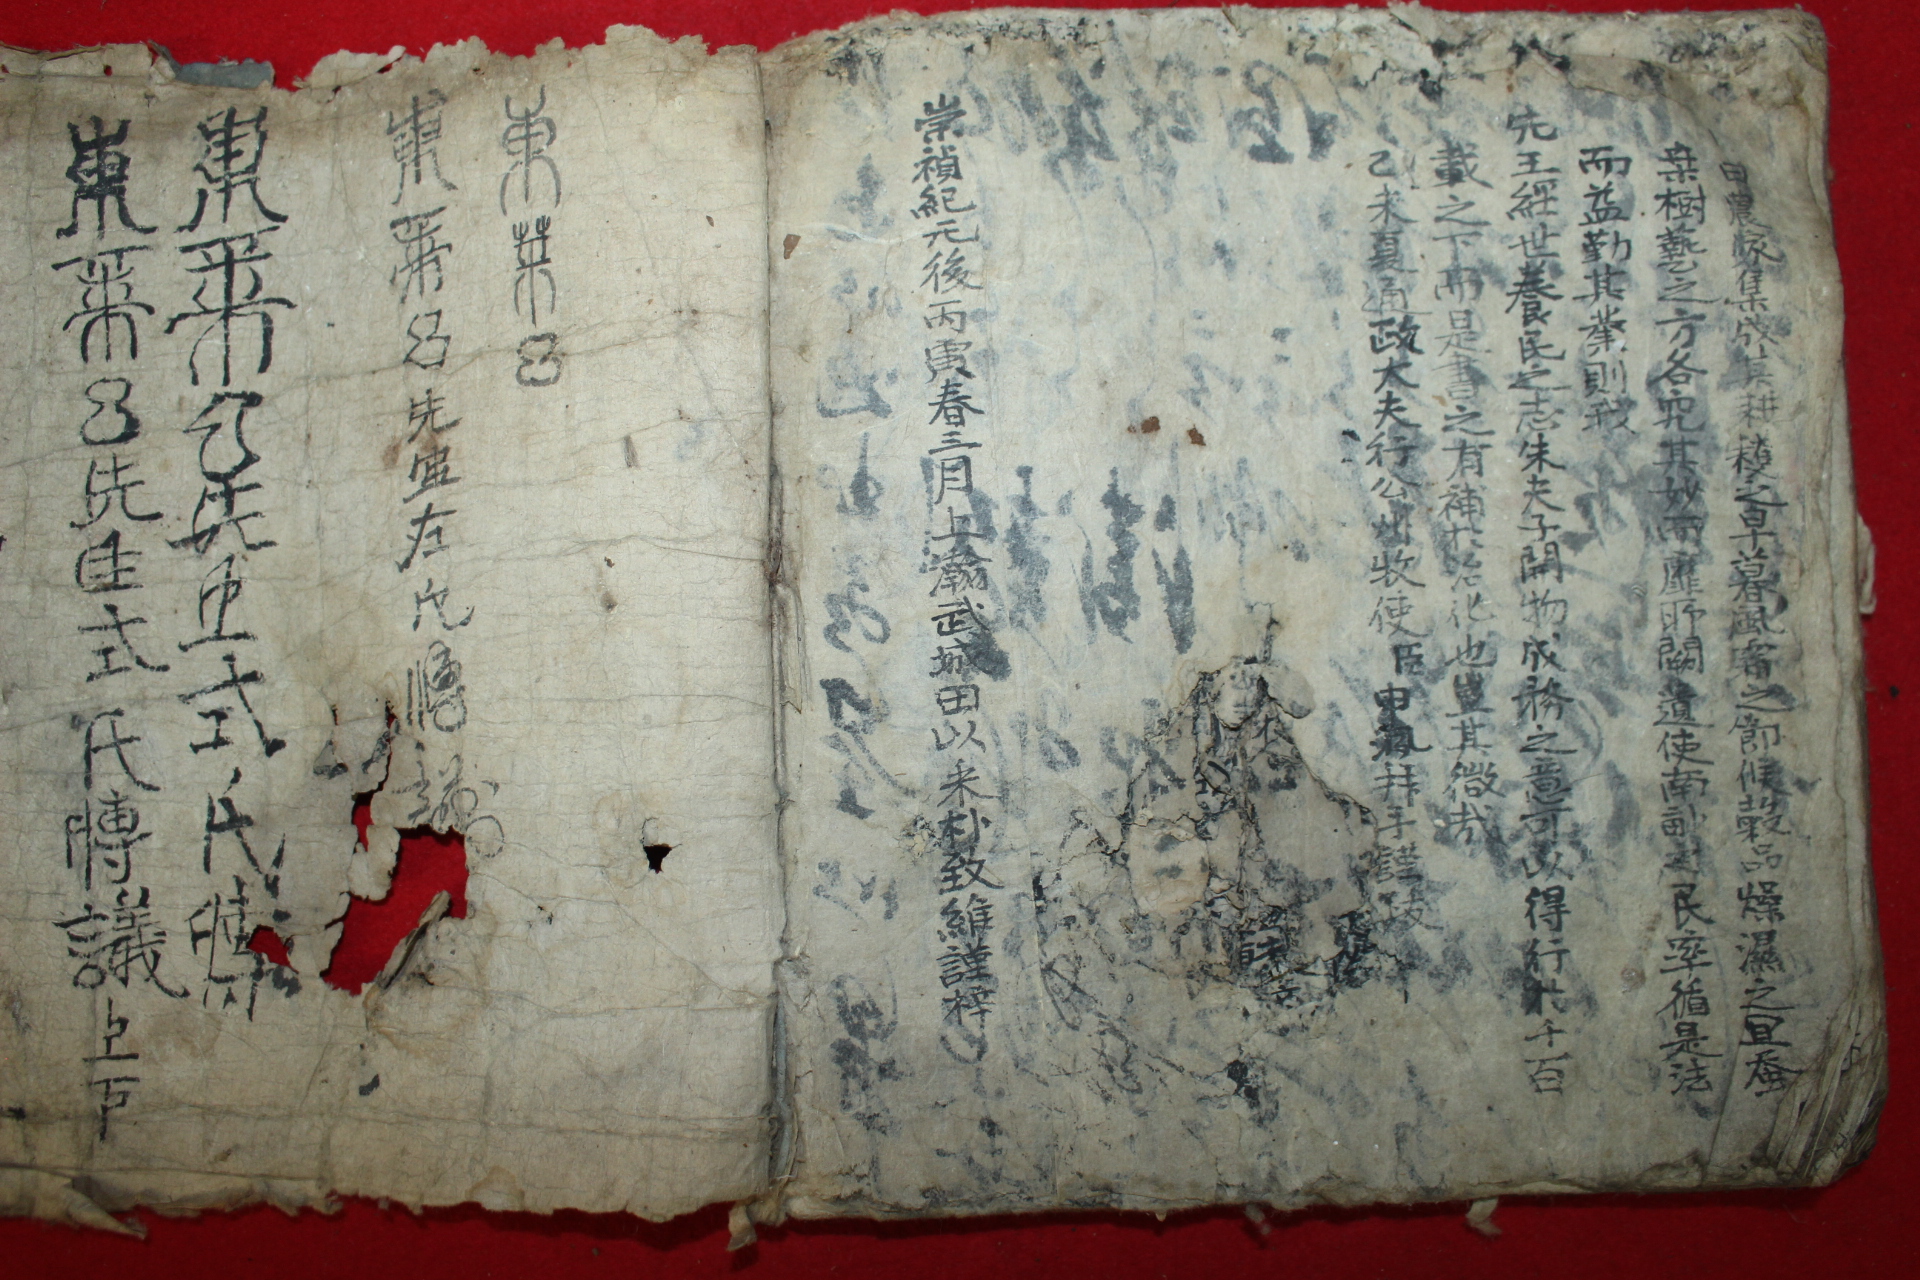 曰農家集成其耕穫之早暮風霜之節候穀品燥濕之宜蚕
桑樹藝之方各究其妙而靡所闕遺使南畝之民率循是法
而益勤其業則我
先王經世養民之志朱夫子開物成務之意可以得行於千百
載之下而是書之有補於治化也豈其微哉
乙未夏通政大夫行公州牧使臣申洬拜手謹跋
崇禎紀元後丙寅春三月上瀚武城田以采朴致維謹梓
東萊呂
東萊呂先生左氏博議
東萊呂先生式氏博
東萊呂先生式氏博議上下